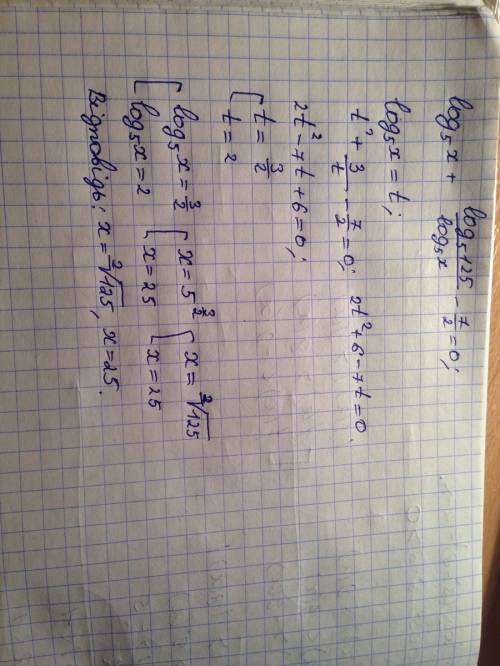 log₅x + log₅125/log₅x - 7/2 = 0;
log₅x = t;
t² + 3/t - 7/2 = 0; 2t² + 6 - 7t = 0.
2t² - 7t + 6 = 0;
[ t = 3/2
t = 2
[ log₅x = 3/2 [ x = 5^(3/2) [ x = ²√125
log₅x = 2 x = 25 x = 25
Відповідь: x = ²√125, x = 25.